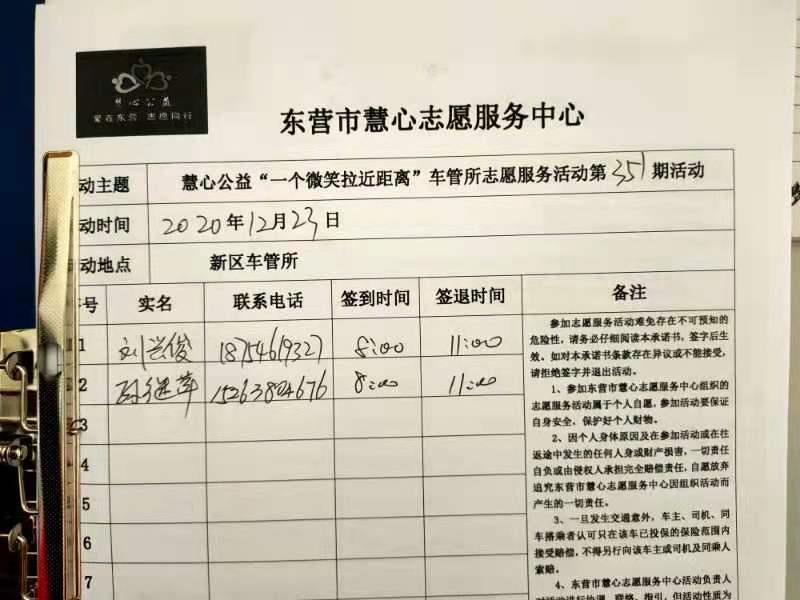 慧心公益
爱在东营 志愿同行
东营市慧心志愿服务中心
动主题 慧心公益“一个微笑拉近距离”车管所志愿服务活动第351期活动
动时间 2020年12月23日
动地点 新区车管所
号 实名 联系电话 签到时间 签退时间 备注
1 刘兴俊 18754619327 8:00 11:00
2 孙继萍 15263804676 8:00 11:00
3
4
5
6
7
参加志愿服务活动难免存在不可预知的
危险性,请务必仔细阅读本承诺书,签字后生
效。如对本承诺书条款存在异议或不能接受,
请拒绝签字并退出活动。
1、参加东营市慧心志愿服务中心组织的
志愿服务活动属于个人自愿,参加活动要保证
自身安全,保护好个人财物。
2、因个人身体原因及在参加活动或在往
返途中发生的任何人身或财产损害,一切责任
自负或由侵权人承担完全赔偿责任,自愿放弃
追究东营市慧心志愿服务中心因组织活动而
产生的一切责任。
3、一旦发生交通意外,车主、司机、同
车搭乘者认可只在该车已投保的保险范围内
接受赔偿,不得另行向该车主或司机及同乘人
索赔。
4、东营市慧心志愿服务中心活动负责人
对活动进行协调、联络、指引,但活动性质为